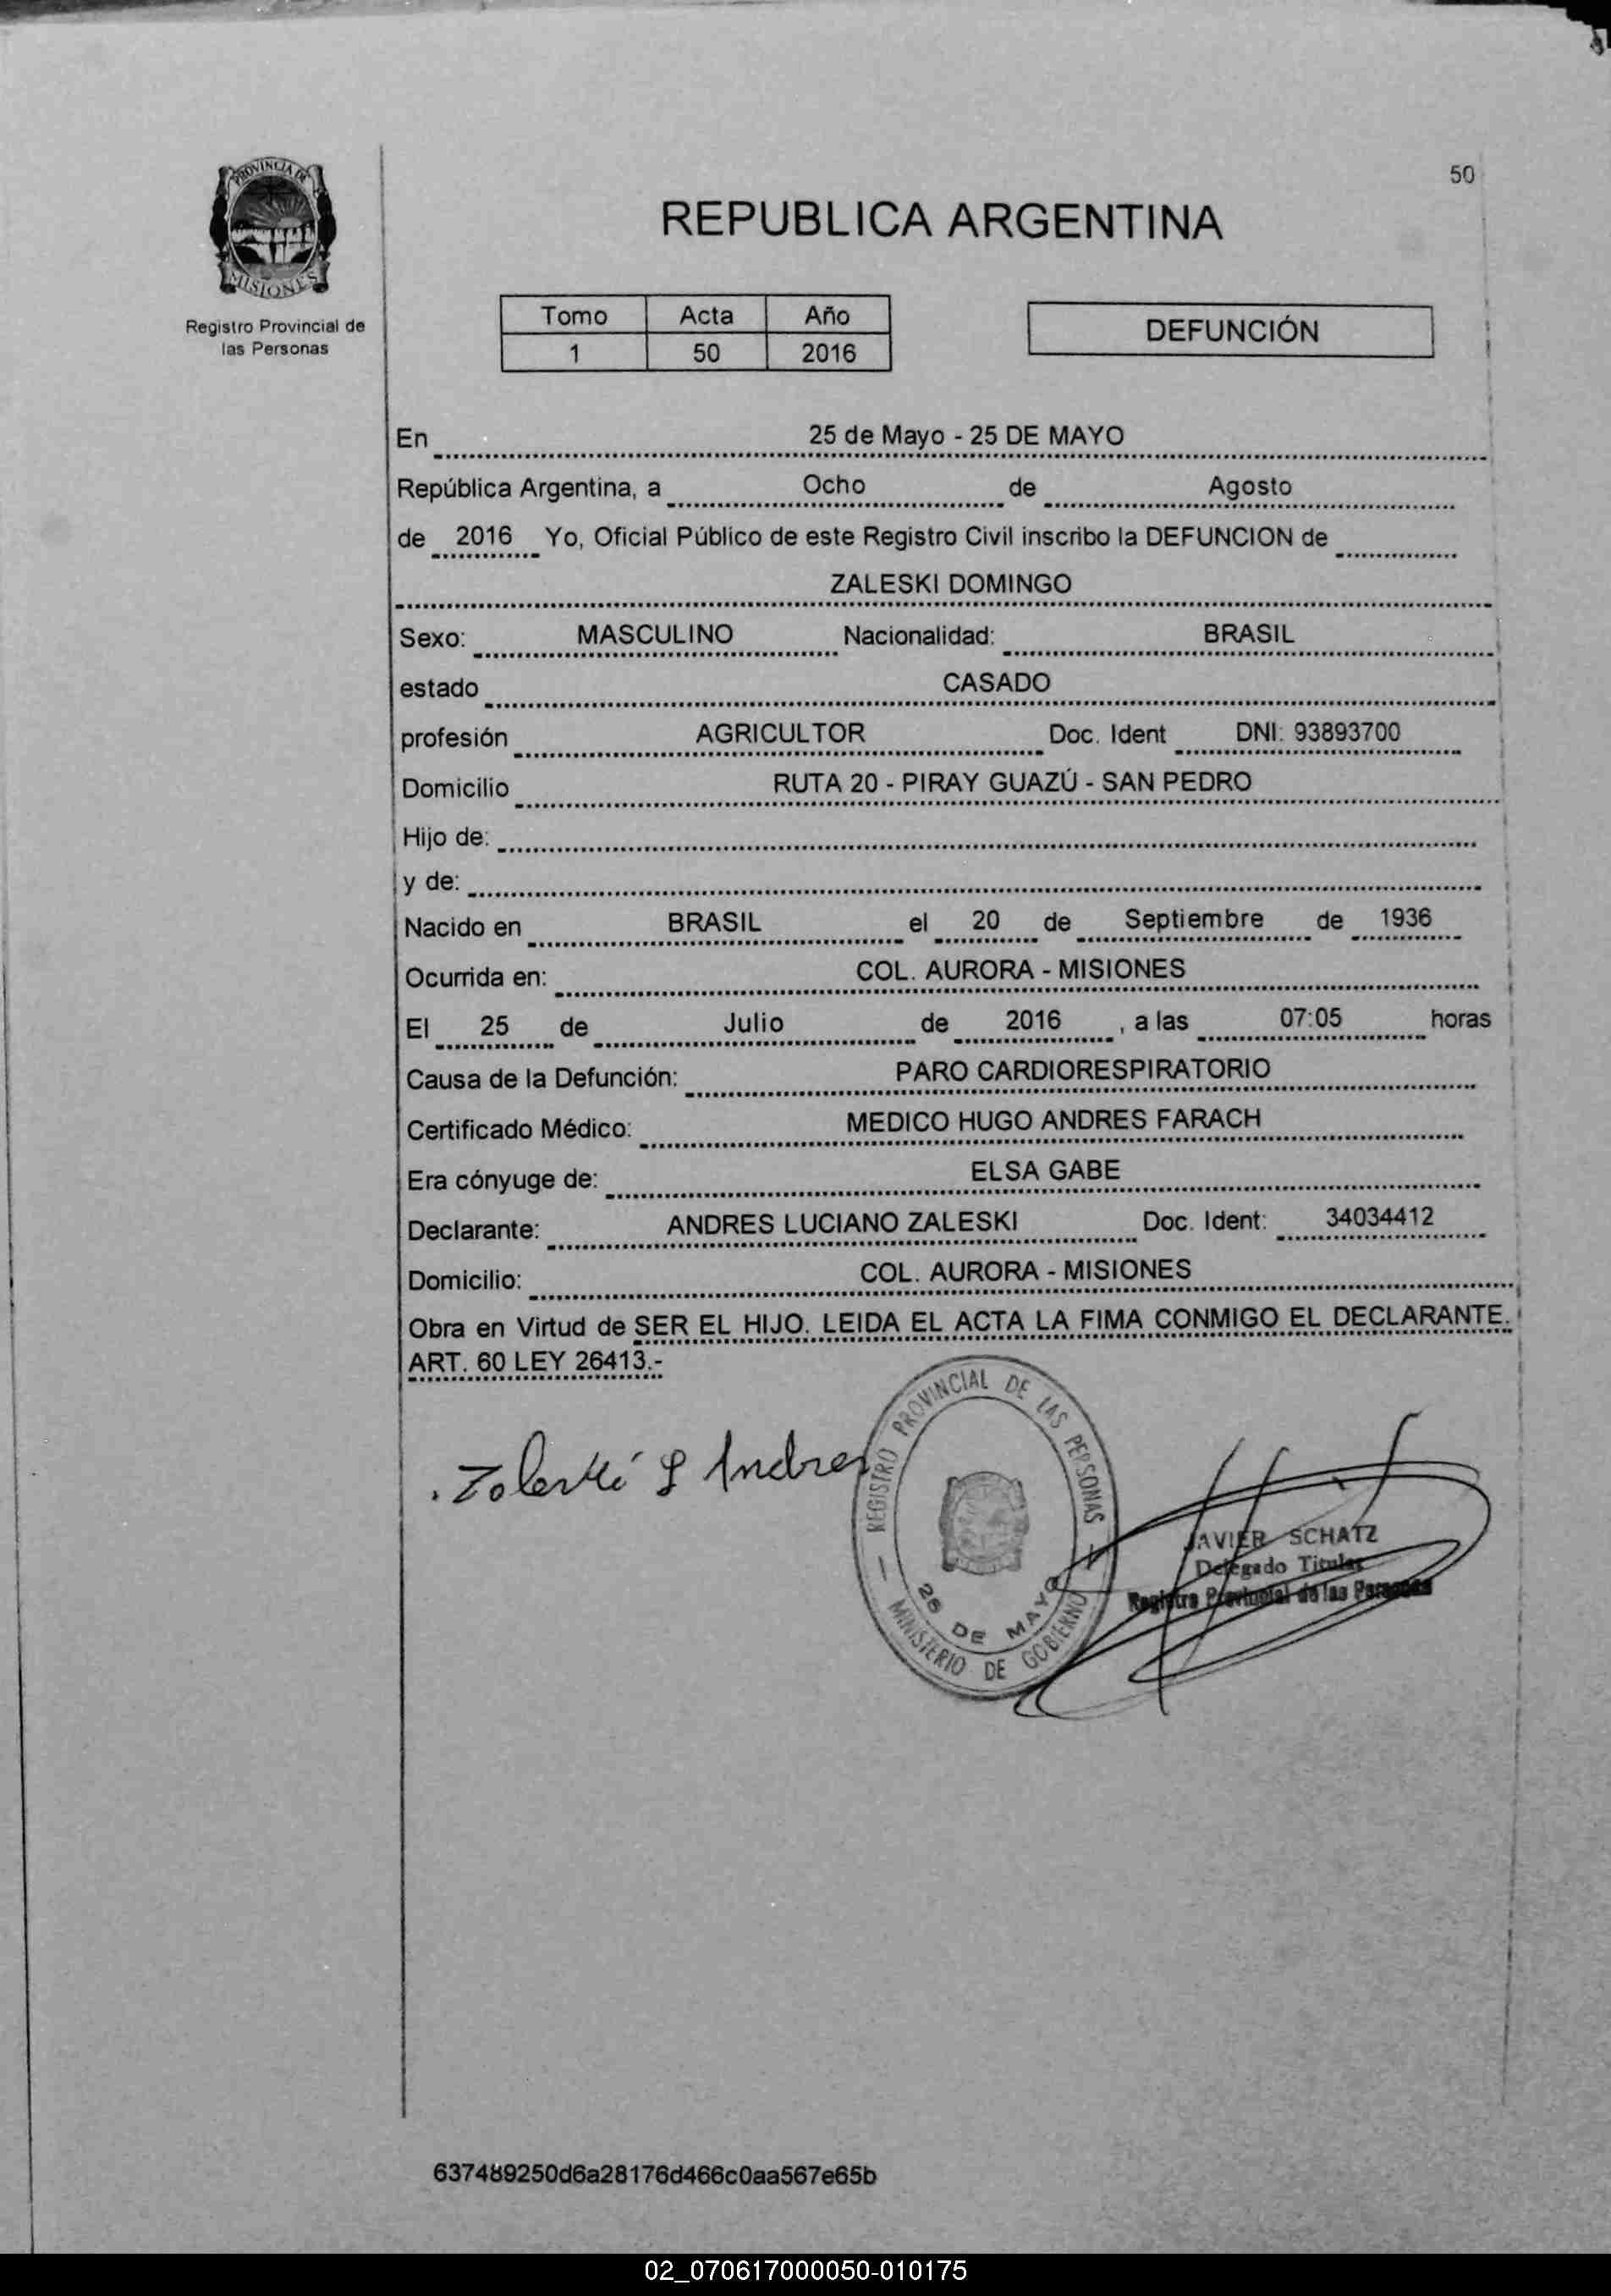 50
PROVINCIA DE
MISIONES
Registro Provincial de
las Personas
REPUBLICA ARGENTINA
Tomo Acta Año
1 50 2016
DEFUNCIÓN
En 25 de Mayo - 25 DE MAYO
República Argentina, a Ocho de Agosto
de 2016 Yo, Oficial Público de este Registro Civil inscribo la DEFUNCION de
ZALESKI DOMINGO
Sexo: MASCULINO Nacionalidad: BRASIL
estado CASADO
profesión AGRICULTOR Doc. Ident DNI: 93893700
Domicilio RUTA 20 - PIRAY GUAZÚ - SAN PEDRO
Hijo de:
y de:
Nacido en BRASIL el 20 de Septiembre de 1936
Ocurrida en: COL. AURORA - MISIONES
El 25 de Julio de 2016 , a las 07:05 horas
Causa de la Defunción: PARO CARDIORESPIRATORIO
Certificado Médico: MEDICO HUGO ANDRES FARACH
Era cónyuge de: ELSA GABE
Declarante: ANDRES LUCIANO ZALESKI Doc. Ident: 34034412
Domicilio: COL. AURORA - MISIONES
Obra en Virtud de SER EL HIJO. LEIDA EL ACTA LA FIMA CONMIGO EL DECLARANTE.
ART. 60 LEY 26413.-
Zaleski L Andres
REGISTRO PROVINCIAL DE LAS PERSONAS
25 DE MAYO
MINISTERIO DE GOBIERNO
JAVIER SCHATZ
Delegado Titular
Registro Provincial de las Personas
637489250d6a28176d466c0aa567e65b
02_070617000050-010175